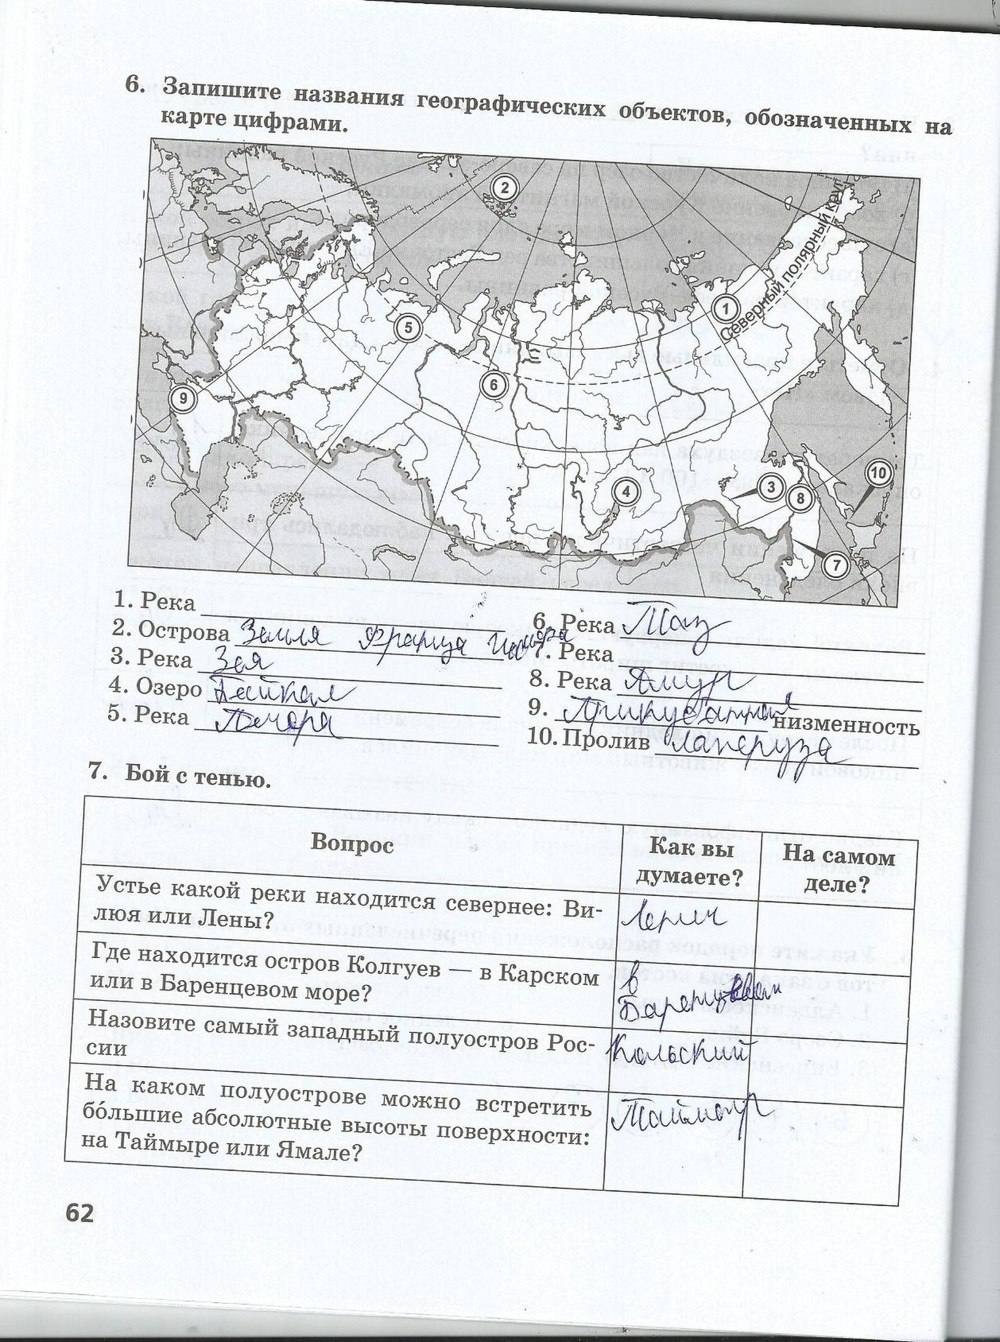 6. Запишите названия географических объектов, обозначенных на
карте цифрами.
2
Северный полярный круг
1
5
6
9
4
3
8
10
7
1. Река
2. Острова Земля Франца Иосифа
3. Река Зея
4. Озеро Байкал
5. Река Печора
6. Река Таз
7. Река
8. Река Амур
9. Прикубанская низменность
10. Пролив Лаперуза
7. Бой с тенью.
Вопрос
Как вы
думаете?
На самом
деле?
Устье какой реки находится севернее: Ви-
люя или Лены?
Лены
Где находится остров Колгуев — в Карском
или в Баренцевом море?
в
Баренцевом
Назовите самый западный полуостров Рос-
сии
Кольский
На каком полуострове можно встретить
бо́льшие абсолютные высоты поверхности:
на Таймыре или Ямале?
Таймыр
62